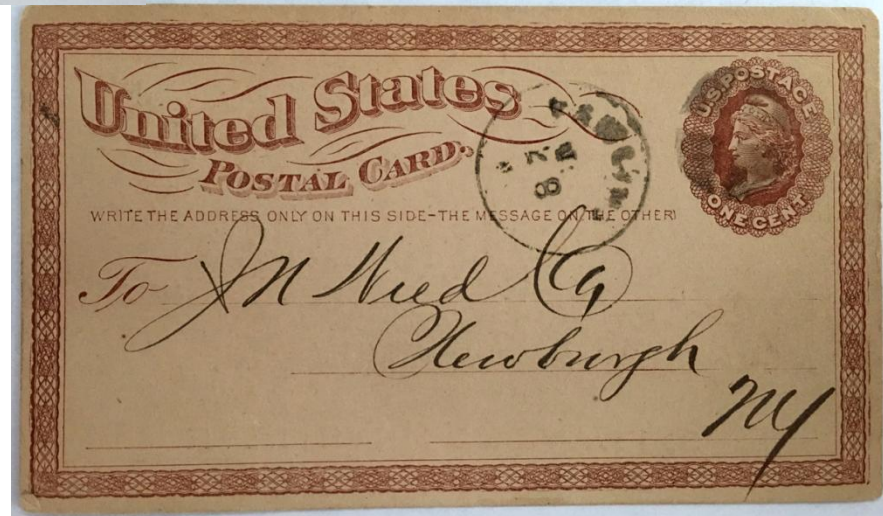 United States
POSTAL CARD.
U.S. POSTAGE
ONE CENT
WRITE THE ADDRESS ONLY ON THIS SIDE-THE MESSAGE ON THE OTHER
To J N Weed Co
Newburgh
NY